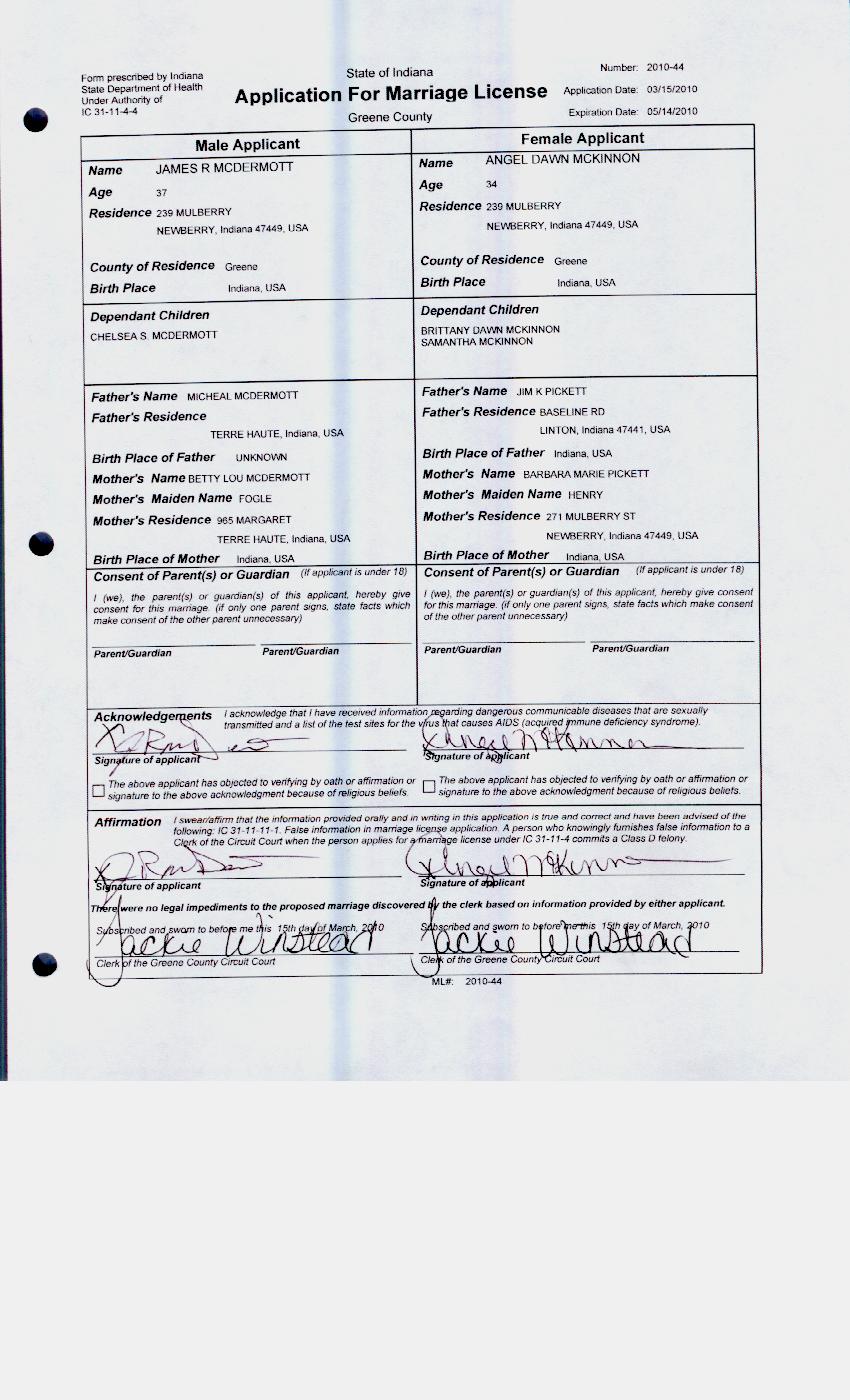 Form prescribed by Indiana
State Department of Health
Under Authority of
IC 31-11-4-4
State of Indiana
Application For Marriage License
Greene County
Number: 2010-44
Application Date: 03/15/2010
Expiration Date: 05/14/2010
Male Applicant
Name JAMES R MCDERMOTT
Age 37
Residence 239 MULBERRY
NEWBERRY, Indiana 47449, USA
County of Residence Greene
Birth Place Indiana, USA
Dependant Children
CHELSEA S. MCDERMOTT
Father's Name MICHEAL MCDERMOTT
Father's Residence
TERRE HAUTE, Indiana, USA
Birth Place of Father UNKNOWN
Mother's Name BETTY LOU MCDERMOTT
Mother's Maiden Name FOGLE
Mother's Residence 965 MARGARET
TERRE HAUTE, Indiana, USA
Birth Place of Mother Indiana, USA
Consent of Parent(s) or Guardian (If applicant is under 18)
I (we), the parent(s) or guardian(s) of this applicant, hereby give
consent for this marriage. (if only one parent signs, state facts which
make consent of the other parent unnecessary)
Parent/Guardian Parent/Guardian
Female Applicant
Name ANGEL DAWN MCKINNON
Age 34
Residence 239 MULBERRY
NEWBERRY, Indiana 47449, USA
County of Residence Greene
Birth Place Indiana, USA
Dependant Children
BRITTANY DAWN MCKINNON
SAMANTHA MCKINNON
Father's Name JIM K PICKETT
Father's Residence BASELINE RD
LINTON, Indiana 47441, USA
Birth Place of Father Indiana, USA
Mother's Name BARBARA MARIE PICKETT
Mother's Maiden Name HENRY
Mother's Residence 271 MULBERRY ST
NEWBERRY, Indiana 47449, USA
Birth Place of Mother Indiana, USA
Consent of Parent(s) or Guardian (If applicant is under 18)
I (we), the parent(s) or guardian(s) of this applicant, hereby give consent
for this marriage. (if only one parent signs, state facts which make consent
of the other parent unnecessary)
Parent/Guardian Parent/Guardian
Acknowledgements I acknowledge that I have received information regarding dangerous communicable diseases that are sexually
transmitted and a list of the test sites for the virus that causes AIDS (acquired immune deficiency syndrome).
Angel McKinnon
Signature of applicant Signature of applicant
The above applicant has objected to verifying by oath or affirmation or
signature to the above acknowledgment because of religious beliefs.
The above applicant has objected to verifying by oath or affirmation or
signature to the above acknowledgment because of religious beliefs.
Affirmation I swear/affirm that the information provided orally and in writing in this application is true and correct and have been advised of the
following: IC 31-11-11-1. False information in marriage license application. A person who knowingly furnishes false information to a
Clerk of the Circuit Court when the person applies for a marriage license under IC 31-11-4 commits a Class D felony.
Angel McKinnon
Signature of applicant Signature of applicant
There were no legal impediments to the proposed marriage discovered by the clerk based on information provided by either applicant.
Subscribed and sworn to before me this 15th day of March, 2010 Subscribed and sworn to before me this 15th day of March, 2010
Jackie Winstead Jackie Winstead
Clerk of the Greene County Circuit Court Clerk of the Greene County Circuit Court
ML#: 2010-44